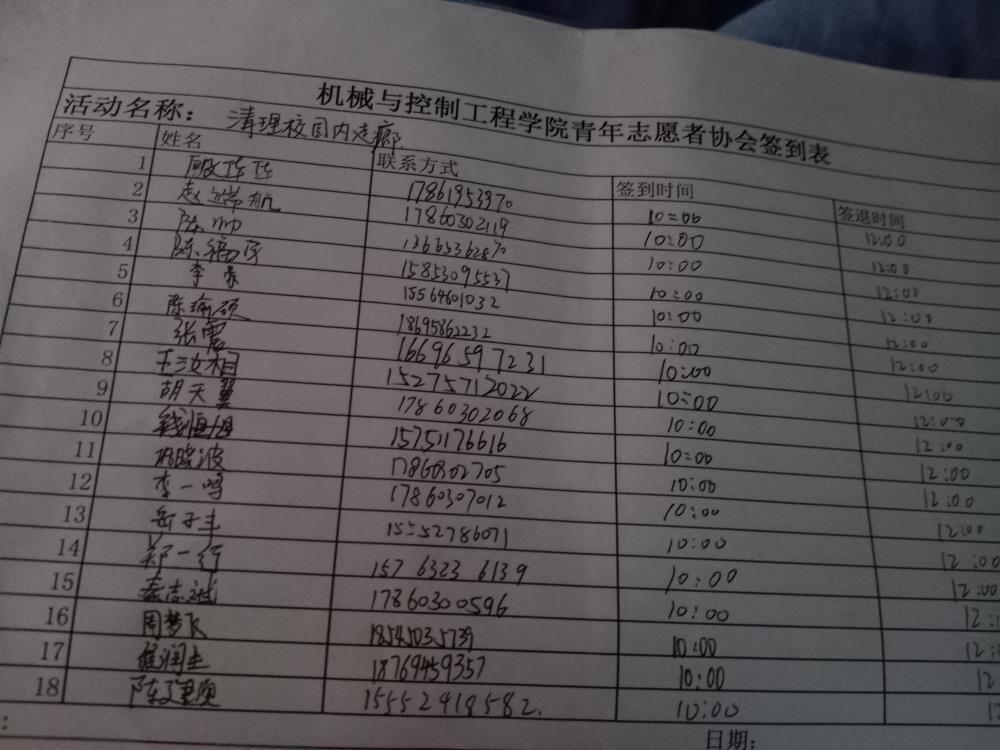 机械与控制工程学院青年志愿者协会签到表
活动名称： 清理校园内走廊
序号 姓名 联系方式 签到时间 签退时间
1 17861953970 10:00 12:00
2 赵 航 17860302119 10:00 12:00
3 陈帅 13665362870 10:00 12:00
4 陈 15853095537 10:00 12:00
5 李豪 15564601032 10:00 12:00
6 陈瑜硕 18695862232 10:00 12:00
7 张震 16696597231 10:00 12:00
8 王汝相 15275712022 10:00 12:00
9 胡天翼 17860302068 10:00 12:00
10 钱恒旭 15751176616 10:00 12:00
11 晓波 17860302705 10:00 12:00
12 李一鸣 17860307012 10:00 12:00
13 岳子丰 15552786071 10:00 12:00
14 郑一行 15763236139 10:00 12:00
15 秦志斌 17860300596 10:00 12:
16 周梦飞 18545035739 10:00 12:
17 程润生 18769459357 10:00 12
18 陈建 15552418582. 10:00 1
: 日期: